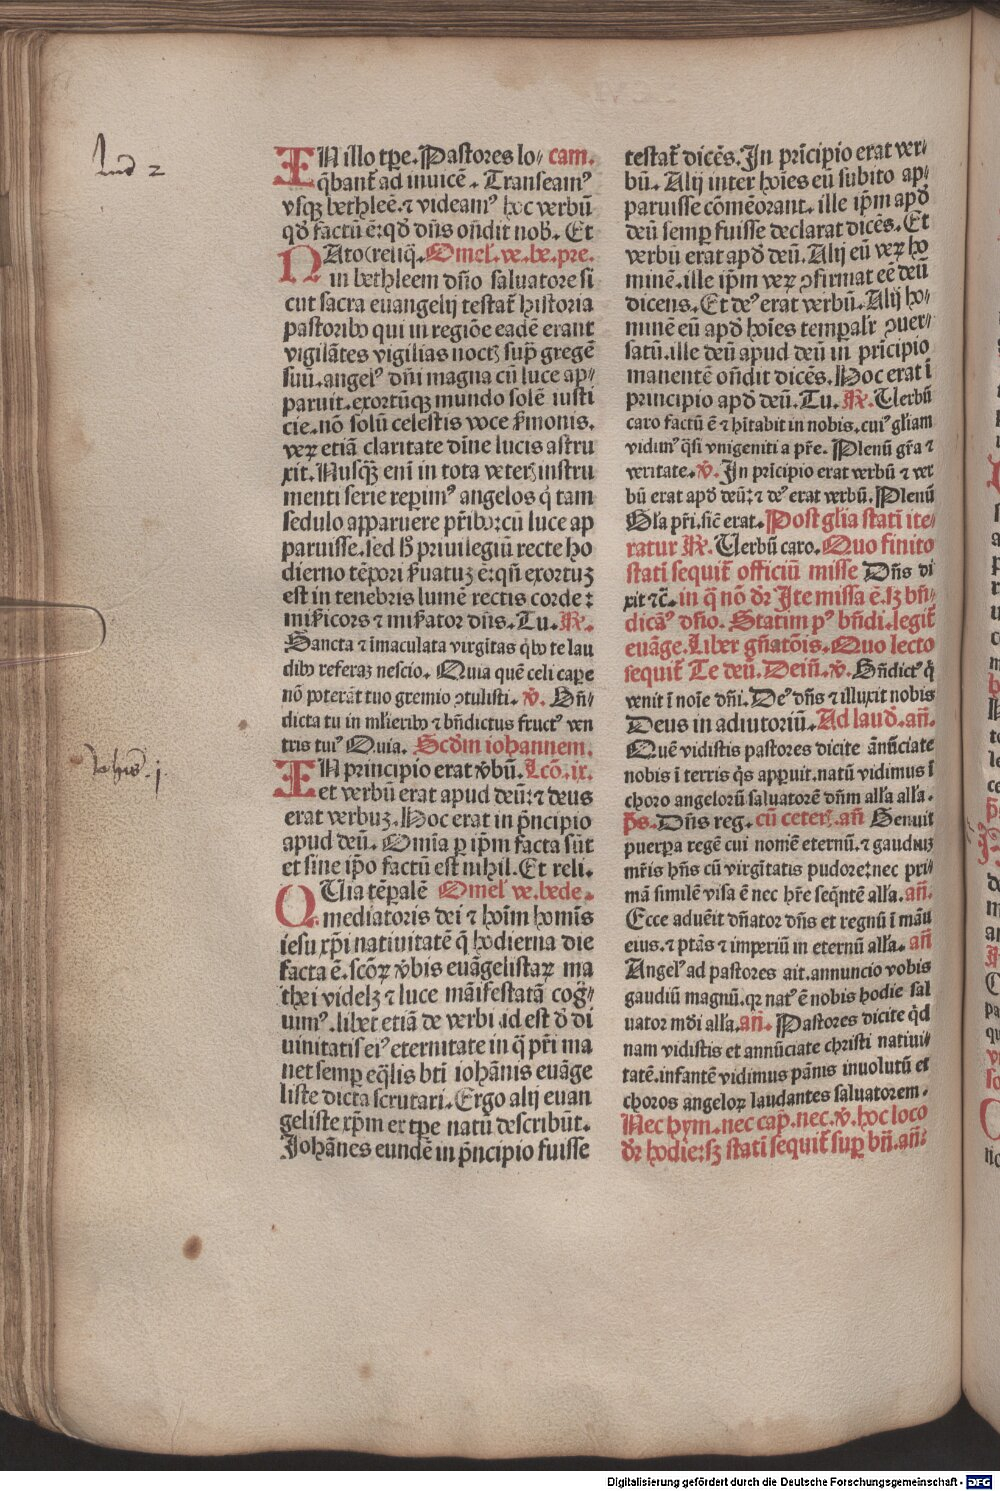 Lud 2
IN illo tꝑe. Pastores lo/ cam.
q̄bant᷑ ad inuicē. Transeam⁹
vsqꝫ bethleē. ⁊ videam⁹ hoc verbū
qd̄ factū ē: qd̄ dn̄s on̄dit nob̄. Et
NAto (reliq̄. Omel. ve. be. pre.
in bethleem dn̄o saluatore si
cut sacra euangelij testat᷑ historia
pastoribꝰ qui in regiōe eadē erant
vigilātes vigilias noctꝭ suꝑ gregē
suū. angel⁹ dn̄i magna cū luce ap⸗
paruit. exortūqꝫ mundo solē iusti
cie. nō solū celestis voce ẜmonis.
veꝝ etiā claritate diīne lucis astru
xit. Nusq̄ꝫ eni in tota veterꝭ instru
menti serie reperim⁹ angelos q̇ tam
sedulo apparuere pr̄ibꝰ: cū luce ap
paruisse. sed h̄ priuilegiū recte ho
dierno tēpori ẜuatuꝫ ē: qn̄ exortuꝫ
est in tenebris lumē rectis corde:
mis̄icors ⁊ mis̄ator dn̄s. Tu. ℟.
Sancta ⁊ īmaculata virgītas q̇bꝰ te lau
dibꝰ referaꝫ nescio. Quia quē celi caꝑe
nō poterāt tuo gremio ꝯtulisti. ℣. Bn̄⸗
dicta tu in ml̄ieribꝰ ⁊ bn̄dictus fruct⁹ ven
tris tui⁹ Quia. Scd̄m iohannem.
Iohis. j.
IN principio erat v̄bū. Lcō. ix.
et verbū erat apud deū: ⁊ deus
erat verbuꝫ. Hoc erat in pͥncipio
apud deū. Omīa ꝑ ip̄m facta sūt
et sine ip̄o factū est nihil. Et reli.
QUia tēpalē Omel̄ ve. bede.
mediatoris dei ⁊ hoīm homīs
iesu xp̄i natiuitatē q̄ hodierna die
facta ē. scōꝝ v̄bis euāgelistaꝝ ma
thei videlꝫ ⁊ luce māifestatā cog̊⸗
uim⁹. libet etiā de verbi .id est d̄ di
uinitatis ei⁹ eternitate in q̄ pr̄i ma
net semꝑ eq̄lis bt̄i iohānis euāge
liste dicta scrutari. Ergo alij euan
geliste xp̄m ex tꝑe natū describūt.
Johānes eundē in pͥncipio fuisse
testat᷑ dicēs. In prīcipio erat ver⸗
bū. Alij inter hoīes eū subito ap⸗
paruisse cōmēorant. ille ip̄m apd̄
deū semꝑ fuisse declarat dicēs. Et
verbū erat apd̄ deū. Alij eū veꝝ ho
minē. ille ip̄m veꝝ ꝯfirmat eē deū
dicens. Et de⁹ erat verbū. Alij ho⸗
minē eū apd̄ hoīes temꝑalr̄ ꝯuer⸗
satū. ille deū apud deū in prīcipio
manentē on̄dit dicēs. Hoc erat ī
principio apd̄ deū. Tu. ℟. Uerbū
caro factū ē ⁊ hītabit in nobis. cui⁹ gl̄iam
vidim⁹ q̄si vnigeniti a pr̄e. Plenū gr̄a ⁊
veritate. ℣. In prīcipio erat verbū ⁊ ver
bū erat apd̄ deū: ⁊ de⁹ erat verbū. Plenū
Gl̄a pr̄i. sic̄ erat. Post gl̄ia statī ite⸗
ratur ℟. Uerbū caro. Quo finito
statī sequit᷑ officiū misse Dn̄s di
xit ⁊c̄. in q̄ nō dr̄ Ite missa ē. sꝫ bn̄⸗
dicā⁹ dn̄o. Statim p⁹ bn̄di. legit᷑
euāge. Liber gn̄atōis. Quo lecto
sequit᷑ Te deū. Dein̄. ℣. Bn̄dict⁹ q̇
venit ī noīe dn̄i. De⁹ dn̄s ⁊ illuxit nobis
Deus in adiutoriū. Ad laud̄. an̄.
Quē vidistis pastores dicite ānūciate
nobis ī terris q̇s appuit. natū vidimus ī
choro angelorū saluatorē dn̄m all̄a all̄a.
p̄s. Dn̄s reg. cū ceterꝭ. an̄ Genuit
puerpa regē cui nomē eternū. ⁊ gaudiuꝫ
mr̄is hn̄s cū virgītatis pudore: nec pri⸗
mā similē visa ē nec hr̄e seq̄ntē all̄a. an̄.
Ecce aduēit dn̄ator dn̄s et regnū ī māu
eius. ⁊ ptās ⁊ imperiū in eternū all̄a. an̄
Angel⁹ ad pastores ait. annuncio vobis
gaudiū magnū. qꝛ nat⁹ ē nobis hodie sal
uator mūdi all̄a. an̄. Pastores dicite q̇d
nam vidistis et annūciate christi natiui⸗
tatē. infantē vidimus pānis inuolutū et
choros angeloꝝ laudantes saluatorem.
Nec hym. nec cap̄. nec. ℣. hoc loco
dr̄ hodie: sꝫ statī sequit᷑ suꝑ bn̄. an̄:
Digitalisierung gefördert durch die Deutsche Forschungsgemeinschaft - DFG